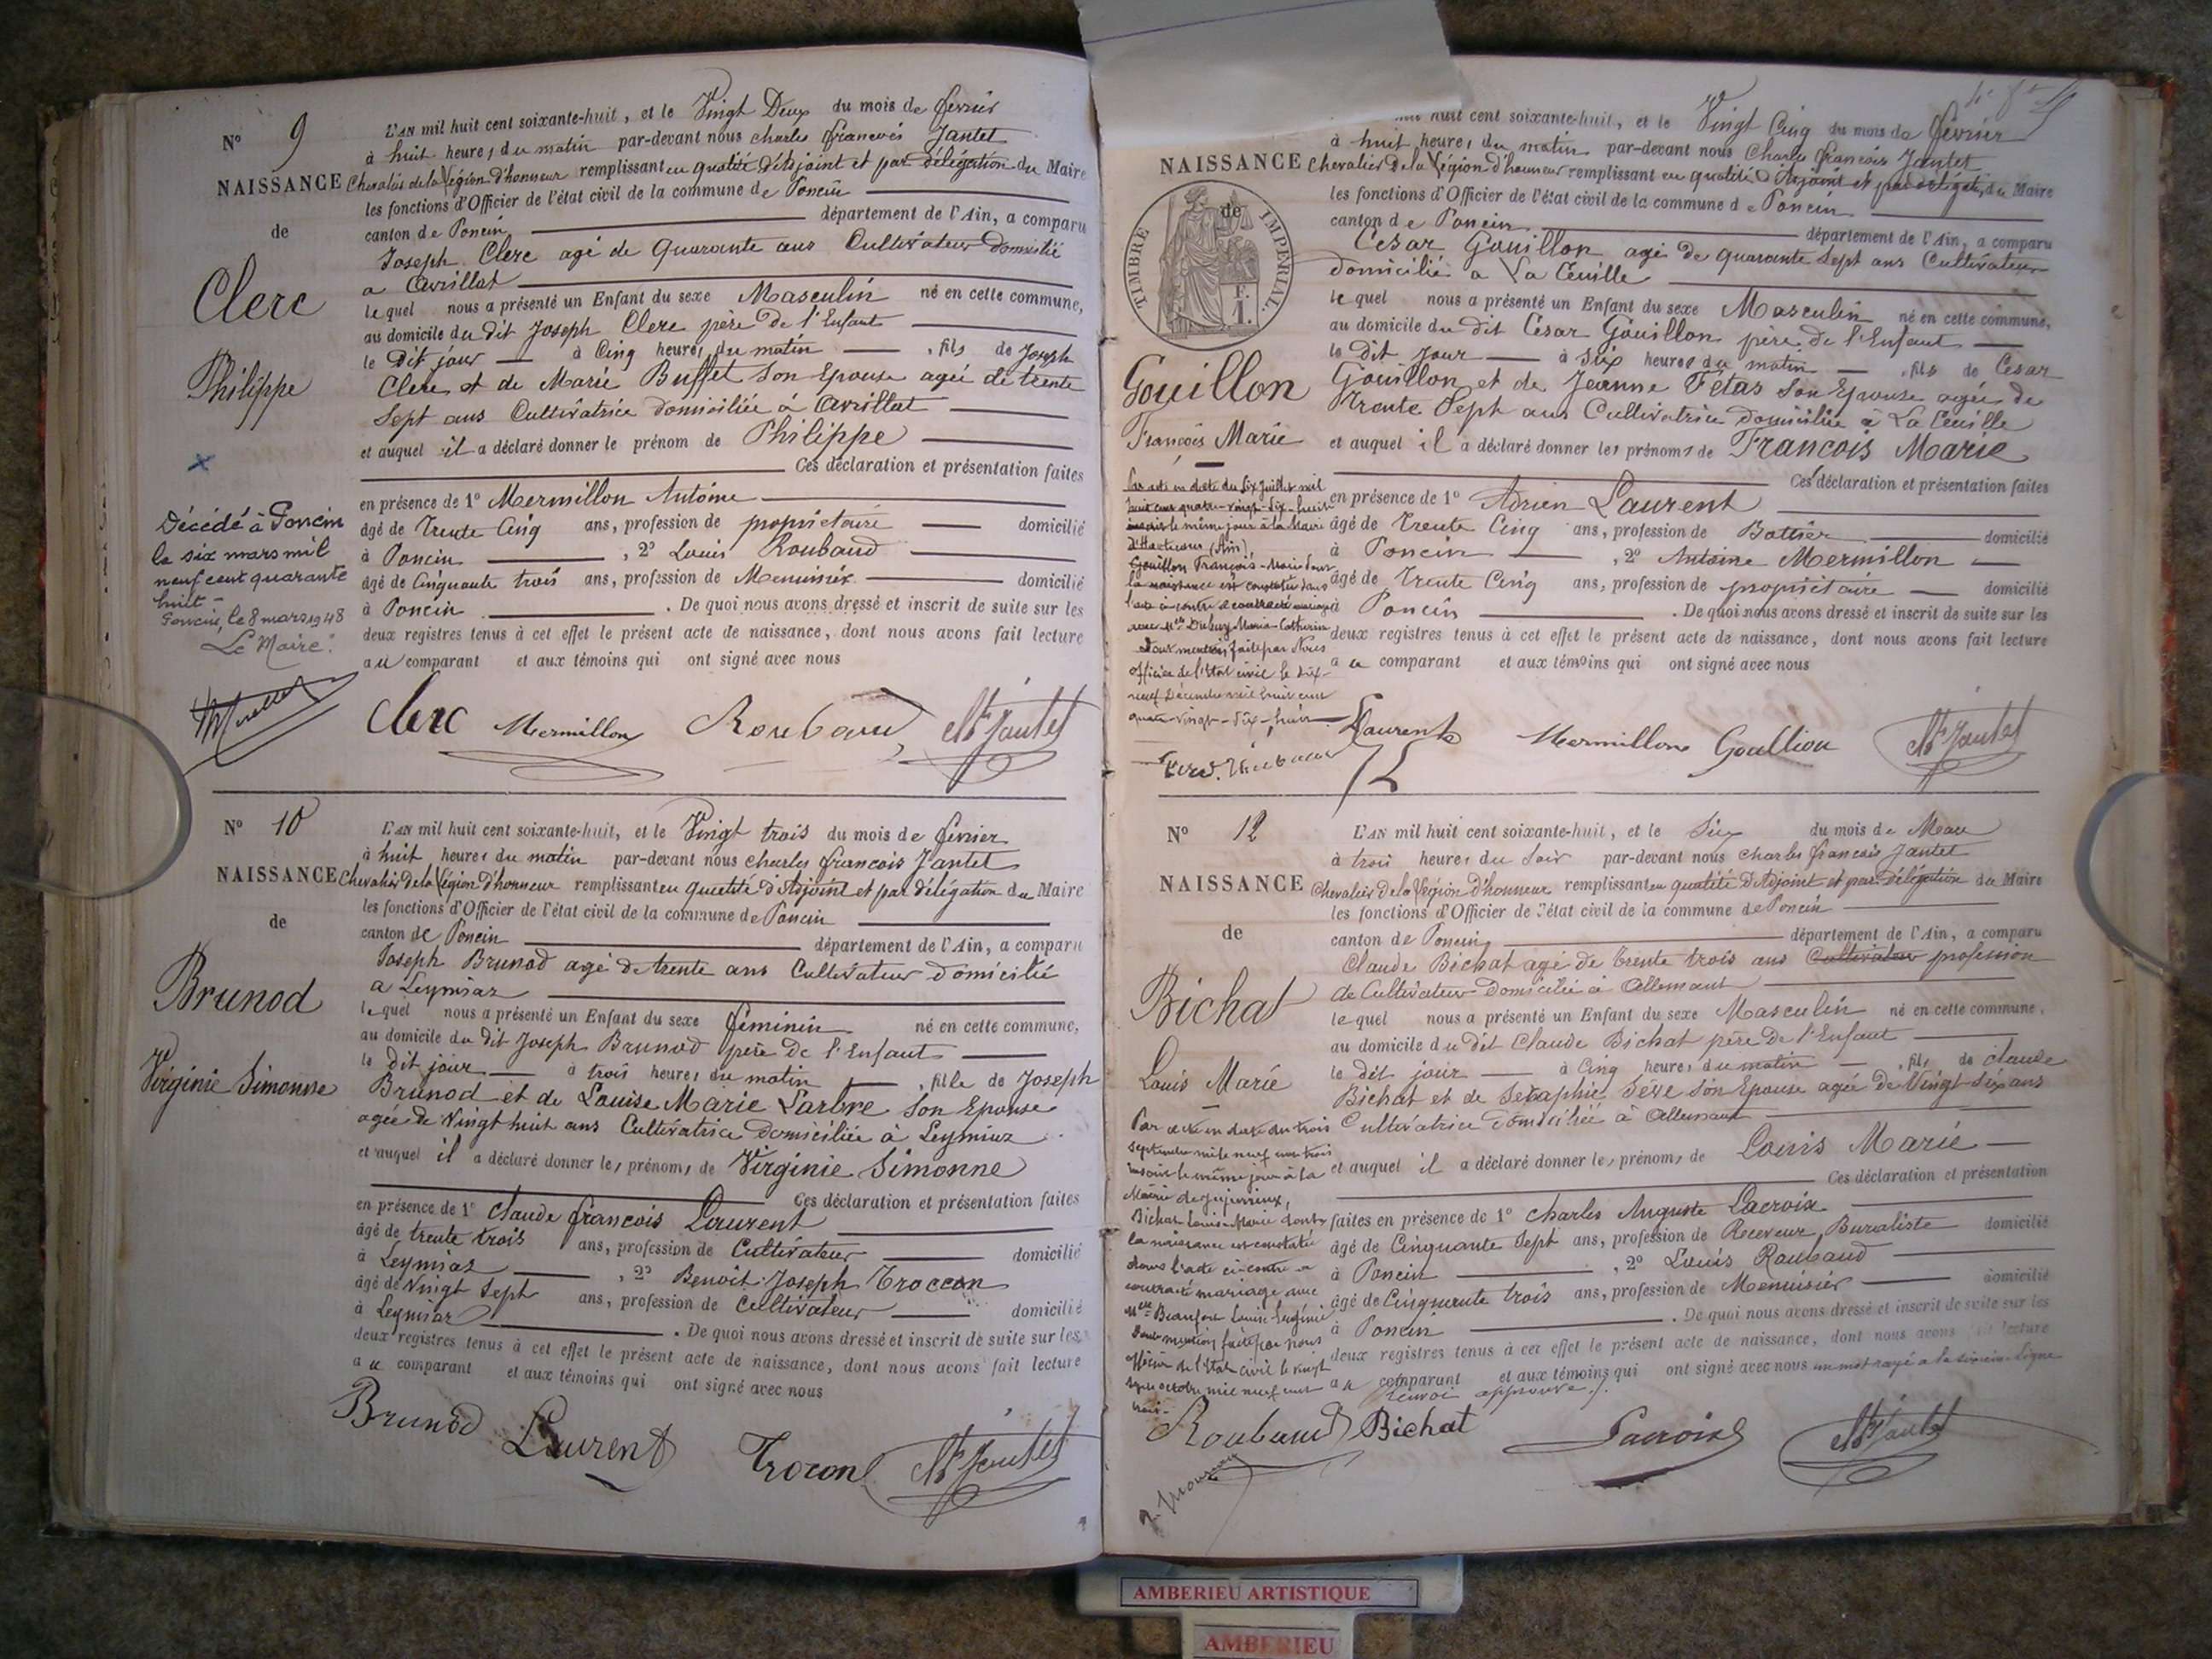 Nº 9
NAISSANCE
de
Clerc
Philippe
Décédé à Poncin
le six mars mil
neuf cent quarante
huit -
Poncin, le 8 mars 1948
Le Maire:
L'AN mil huit cent soixante-huit, et le Vingt Deux du mois de fevrier
à huit heures du matin par-devant nous charles francois Jantet
Chevalier de la Légion d'honneur remplissant en qualité d'Adjoint et par délégation du Maire
les fonctions d'Officier de l'état civil de la commune de Poncin
canton de Poncin département de l'Ain, a comparu
Joseph Clerc agé de quarante ans Cultivateur domicilié
a Avrillat
lequel nous a présenté un Enfant du sexe Masculin né en cette commune,
au domicile du dit Joseph Clerc père de l'Enfant
le dit jour à Cinq heures du matin , fils de Joseph
Clerc et de Marie Buffet son Epouse agée de trente
Sept ans Cultivatrice domiciliée à Avrillat
et auquel il a déclaré donner le prénom de Philippe
Ces déclaration et présentation faites
en présence de 1º Mermillon Antoine
âgé de Trente Cinq ans, profession de propriétaire domicilié
à Poncin , 2º Louis Roubaud
âgé de Cinquante trois ans, profession de Menuisier domicilié
à Poncin . De quoi nous avons dressé et inscrit de suite sur les
deux registres tenus à cet effet le présent acte de naissance, dont nous avons fait lecture
au comparant et aux témoins qui ont signé avec nous
Clerc Mermillon Roubaud Jantet
Nº 10
NAISSANCE
de
Brunod
Virginie Simonne
L'AN mil huit cent soixante-huit, et le Vingt trois du mois de fevrier
à huit heures du matin par-devant nous charles francois Jantet
Chevalier de la Légion d'honneur remplissant en qualité d'Adjoint et par délégation du Maire
les fonctions d'Officier de l'état civil de la commune de Poncin
canton de Poncin département de l'Ain, a comparu
Joseph Brunod agé de trente ans Cultivateur domicilié
a Leymiaz
lequel nous a présenté un Enfant du sexe féminin né en cette commune,
au domicile du dit Joseph Brunod père de l'Enfant
le dit jour à trois heures du matin , fille de Joseph
Brunod et de Louise Marie Larbre son Epouse
agée de Vingt huit ans Cultivatrice domiciliée à Leymiaz
et auquel il a déclaré donner les prénoms de Virginie Simonne
Ces déclaration et présentation faites
en présence de 1º Claude francois Laurent
âgé de trente trois ans, profession de Cultivateur domicilié
à Leymiaz , 2º Benoit Joseph Troccon
âgé de Vingt Sept ans, profession de Cultivateur domicilié
à Leymiaz . De quoi nous avons dressé et inscrit de suite sur les
deux registres tenus à cet effet le présent acte de naissance, dont nous avons fait lecture
au comparant et aux témoins qui ont signé avec nous
Brunod Laurent Trocon Jantet
NAISSANCE
de
TIMBRE IMPERIAL.
Gouillon
François Marie
Par acte en date du six juillet mil
huit cent quatre-vingt-dix-huit
inscrit le même jour à la Mairie
(Ain)
Gouillon François-Marie dont
la naissance est constatée dans
l'acte ci-contre a contracté mariage
avec Mlle Marie
Dont mention faite par Nous
officier de l'Etat civil le dix-
neuf Décembre mil huit cent
quatre-vingt-dix-huit
mil huit cent soixante-huit, et le Vingt Cinq du mois de février
à huit heures du matin par-devant nous Charles francois Jantet
Chevalier De la Légion d'honneur remplissant en qualité d'Adjoint et par délégation du Maire
les fonctions d'Officier de l'état civil de la commune de Poncin
canton de Poncin département de l'Ain, a comparu
César Gouillon agé de quarante Sept ans Cultivateur
domicilié a La Ceuille
lequel nous a présenté un Enfant du sexe Masculin né en cette commune,
au domicile du dit César Gouillon père de l'Enfant
le dit Jour à Six heures du matin , fils de César
Gouillon et de Jeanne Fétas son Epouse agée de
trente Sept ans Cultivatrice domiciliée à La Ceuille
et auquel il a déclaré donner les prénoms de Francois Marie
Ces déclaration et présentation faites
en présence de 1º Adrien Laurent
âgé de Trente Cinq ans, profession de Bottier domicilié
à Poncin , 2º Antoine Mermillon
âgé de Trente Cinq ans, profession de propriétaire domicilié
à Poncin . De quoi nous avons dressé et inscrit de suite sur les
deux registres tenus à cet effet le présent acte de naissance, dont nous avons fait lecture
au comparant et aux témoins qui ont signé avec nous
Laurent Mermillon Goullion Jantet
Nº 12
NAISSANCE
de
Bichat
Louis Marie
Par acte en date du trois
septembre mil neuf cent trois
inscrit le même jour à la
Mairie de Jujurieux,
Bichat Louis-Marie dont
la naissance est constatée
dans l'acte ci-contre a
contracté mariage avec
Mlle Louise Eugénie
Dont mention faite par nous
officier de l'Etat civil le vingt
sept octobre mil neuf cent
trois.
L'AN mil huit cent soixante-huit, et le Six du mois de Mars
à trois heures du Soir par-devant nous Charles francois Jantet
Chevalier de la Légion d'honneur remplissant en qualité d'Adjoint et par délégation du Maire
les fonctions d'Officier de l'état civil de la commune de Poncin
canton de Poncin département de l'Ain, a comparu
Claude Bichat agé de trente trois ans Cultivateur profession
de Cultivateur domicilié à Allemant
lequel nous a présenté un Enfant du sexe Masculin né en cette commune,
au domicile du dit Claude Bichat père de l'Enfant
le dit jour à Cinq heures du matin , fils de Claude
Bichat et de Séraphie Sève son Epouse agée de Vingt Six ans
Cultivatrice domiciliée à Allemant
et auquel il a déclaré donner les prénoms de Louis Marie
Ces déclaration et présentation
faites en présence de 1º Charles Auguste Lacroix
âgé de Cinquante Sept ans, profession de Receveur Buraliste domicilié
à Poncin , 2º Louis Roubaud
âgé de Cinquante trois ans, profession de Menuisier domicilié
à Poncin . De quoi nous avons dressé et inscrit de suite sur les
deux registres tenus à cet effet le présent acte de naissance, dont nous avons fait lecture
au comparant et aux témoins qui ont signé avec nous un mot rayé a la Ligne
Renvoi approuvé
Roubaud Bichat Lacroix Jantet
AMBERIEU ARTISTIQUE
AMBERIEU